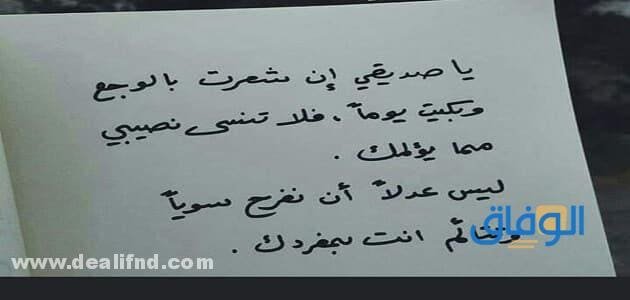 يا صديقي إن شعرت بالوجع
وبكيت يوماً، فلا تنسى نصيبي
مما يؤلمك .
ليس عدلاً أن نفرح سوياً
وتتألم انت بمفردك .
الوفاق
www.dealifnd.com